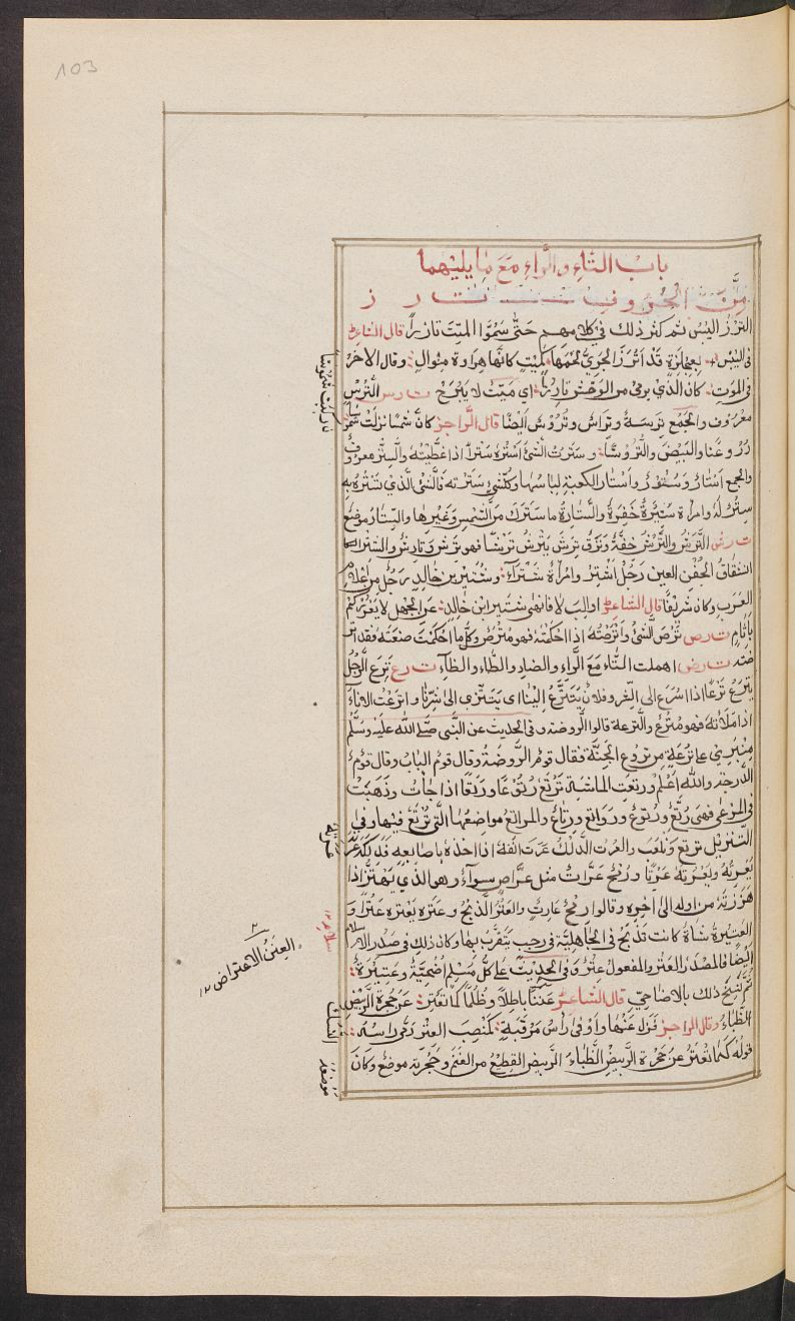 103
باب التاء والراء مع ما يليهما
من الحروف ت ر ز
الترز اليبس ثم كثر ذلك في كلامهم حتى سموا الميت تارزا قال الشاعر
في اليبس بعجلزة قد اترز الجري لحمها كميت كانها هراوة منوال وقال الاخر
في الموت كان الذي يرمى من الوحش تارز اي ميت لا يبرح ت ر س الترس
معروف والجمع ترسة وتراس وتروس ايضا قال الراجز كان شمسا نزلت شموسا
دروعنا والبيض والتروسا وسترت الشئ استره سترا اذا غطيته والستر معروف
والجمع استار وستور واستار الكعبة لباسها وكل شئ سترته فالشئ الذي تستره به
ستر له وامراة ستيرة خفرة والستارة ما سترك من الشمس وغيرها والستار موضع
ت ر ش الترش والترش خفة ونزق ترش يترش ترشا فهو ترش وتارش والشتر
انشقاق الجفن العين رجل اشتر وامراة شتراء وشتير بن خالد رجل من اعلام
العرب وكان شريفا قال الشاعر اوالب لا فانهى شتير ابن خالد عن الجهل لا يغرركم
باثام ت ر ص ترص الشئ واترصته اذا احكمته فهو مترص وكل ما احكمت صنعته فقد اتر
صته ت ر ض اهملت التاء مع الراء والضاد والطاء والظاء ت ر ع ترع الرجل
يترع ترعا اذا اسرع الى الشر وفلان يتترع الينا اى يتنزى الى شرنا واترعت الاناء
اذا ملأته فهو مترع والترعة قالوا الروضة وفى الحديث عن النبى صلى الله عليه وسلم
منبري على ترعة من ترع الجنة فقال قوم الروضة وقال قوم الباب وقال قوم
الدرجة والله اعلم ورتعت الماشية ترتع رتوعا ورتعا اذا جاءت وذهبت
في المرعى فهى رتع ورتوع ورواتع ورتاع والمراتع مواضعها التي ترتع فيها وفي
التنزيل نرتع ونلعب والعرت الدلك عرت انفه اذا اخذه باصابعه فدلكه عرته
يعرته ويعرته عرتا ورمح عرات مثل عراص سواء وهو الذي يهتز اذا
هززته من اوله الى اخره وقالوا رمح عارت والعتر الذبح وعتره يعتره عترا و
العتيرة شاة كانت تذبح في الجاهلية في رجب يتقرب بها وكان ذلك فى صدر الاسلام
ايضا فالمصدر العتر والمفعول عتر وفى الحديث على كل مسلم اضحية وعتيرة
ثم نسخ ذلك بالاضاحي قال الشاعر عننا باطلا وظلما كما تعتر عن حجرة الربيض
الظباء وقال الراجز فزل عنها واوفى راس مرقبة كمنصب العتر دمى راسه
قوله كما تعتر عن حجرة الربيض الظباء الربيض القطيع من الغنم وحجرته موضعه وكان
العنن الاعتراض ١٢